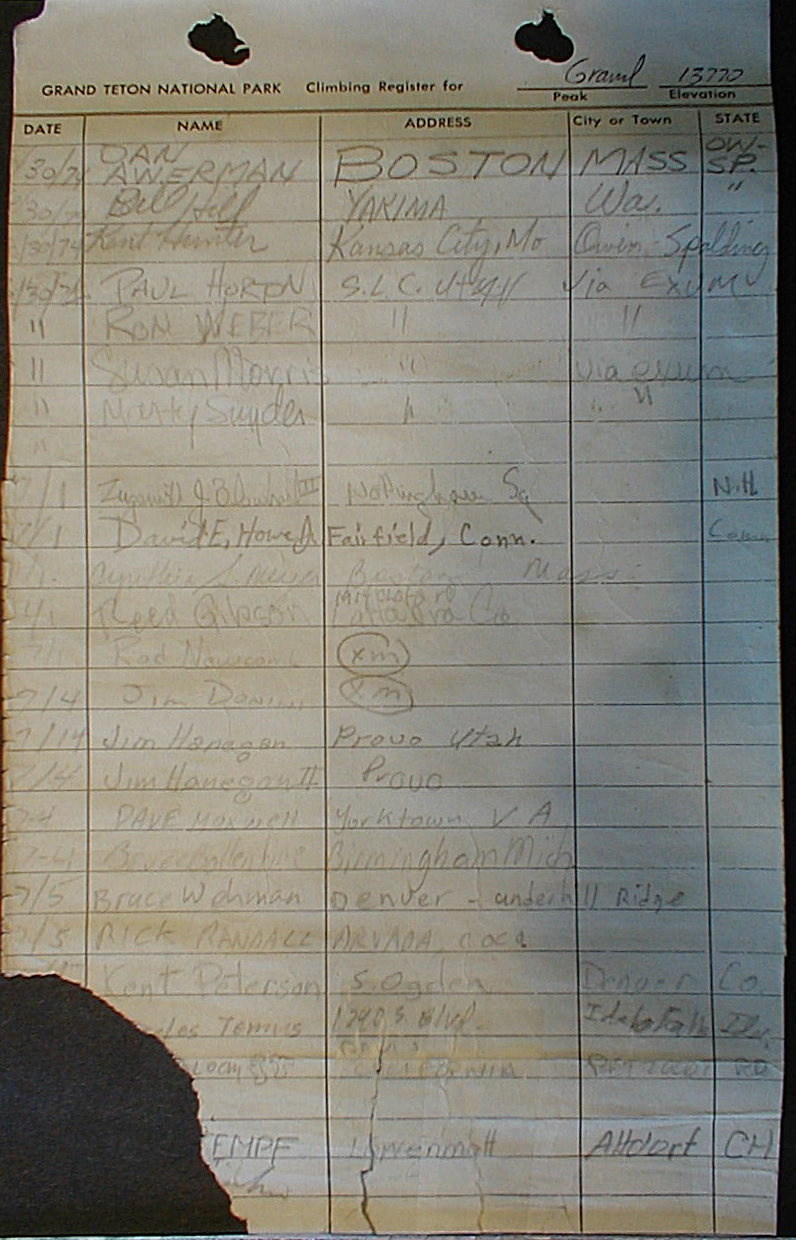 Grand 13770
GRAND TETON NATIONAL PARK Climbing Register for Peak Elevation
DATE NAME ADDRESS City or Town STATE
30/74 DAN AWERMAN BOSTON MASS OW-SP.
Bill Hill YAKIMA Wa. "
30/74 Kent Hunter Kansas City, Mo Owen Spalding
PAUL HORTON S.L.C. Utah Via EXUM
" RON WEBER " "
" Susan Morris " via exum
" Marty Snyder " " "
"
7/1 III Nottingham Sq N.H.
7/1 David E. Howe Jr Fairfield, Conn. Conn
Boston Mass.
7/1 Reed Gibson Co
7/ Rod Newcomb XM
7/4 Jim Donini XM
7/14 Jim Hanagan Provo Utah
7/4 Jim Hanegan II Provo
7-4 DAVE MAXWELL Yorktown VA
7-4 Bruce Ballentine Birmingham Mich
7/5 Bruce Wehman Denver - underhill Ridge
7/5 RICK RANDALL ARVADA, COLO.
Kent Peterson S. Ogden Denver Co.
Idaho Falls Ida.
CALIFORNIA
EMPF Altdorf CH